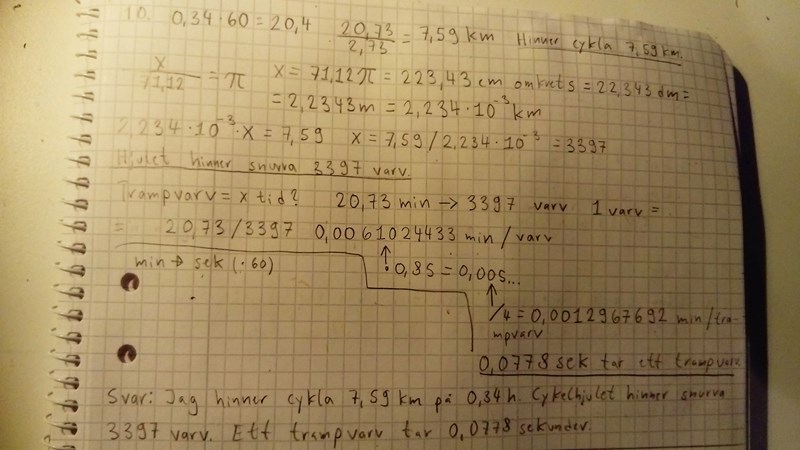 10. 0,34·60=20,4 20,73/2,73 = 7,59 km Hinner cykla 7,59 km.
x/71,12 = π x = 71,12π = 223,43 cm omkrets = 22,343 dm =
= 2,2343m = 2,234·10⁻³ km
2,234·10⁻³·x = 7,59 x = 7,59/2,234·10⁻³ = 3397
Hjulet hinner snurra 3397 varv.
Trampvarv = x tid? 20,73 min → 3397 varv 1 varv =
= 20,73/3397 0,0061024433 min/varv
min → sek (·60) ·0,85 = 0,005...
/4 = 0,0012967692 min/tra-
mpvarv
0,0778 sek tar ett trampvarv.
Svar: Jag hinner cykla 7,59 km på 0,34 h. Cykelhjulet hinner snurra
3397 varv. Ett trampvarv tar 0,0778 sekunder.